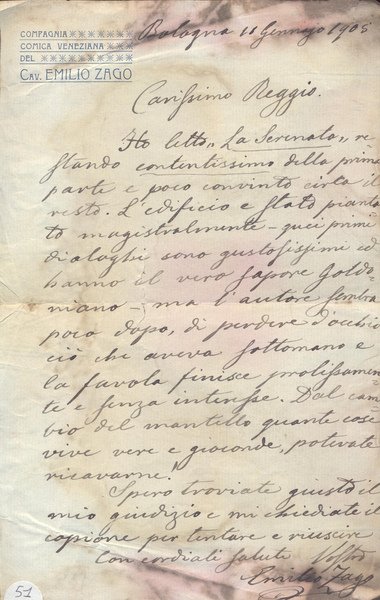 COMPAGNIA
COMICA VENEZIANA
DEL
CAV. EMILIO ZAGO
Bologna 11 Gennajo 1905
Carissimo Reggio.
Ho letto „La Serenata„ re
stando contentissimo della prima
parte e poco convinto circa il
resto. L'edificio è stato pianta
to magistralmente - quei primi
dialoghi sono gustosissimi ed
hanno il vero sapore Goldo
niano - ma l'autore sembra
poco dopo, di perdere d'occhio
ciò che aveva sottomano e
la favola finisce prolissamen
te e senza interesse. Dal cam
bio del mantello quante cose
vive vere e gioconde, potevate
ricavarne!
Spero troviate giusto il
mio giudizio e mi chiediate il
copione per tentare e riuscire
Con cordiali saluti Vostro
Emilio Zago
51